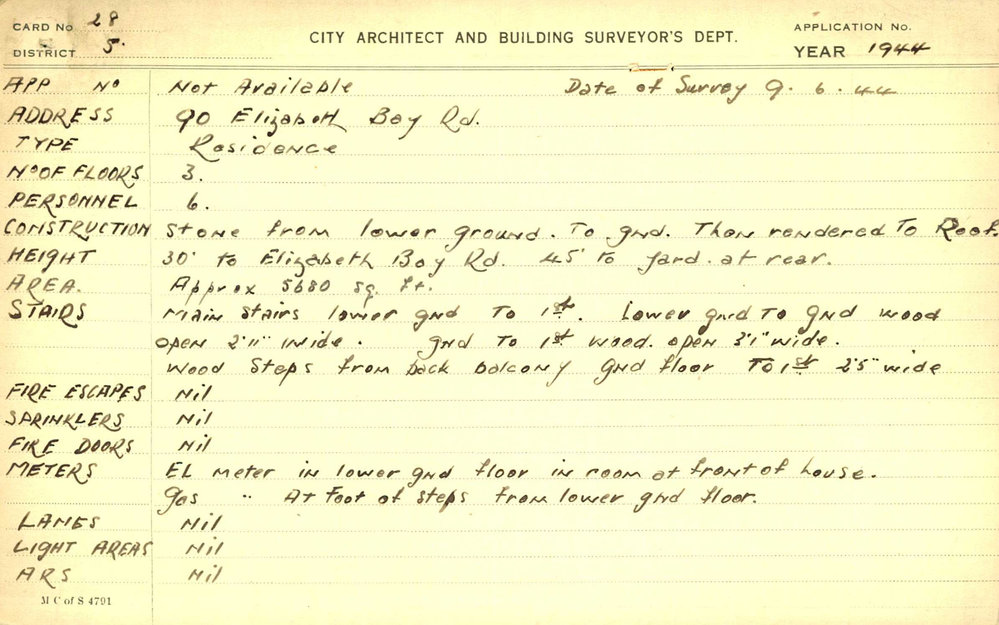 CARD No 28
DISTRICT 5
CITY ARCHITECT AND BUILDING SURVEYOR'S DEPT.
APPLICATION No.
YEAR 1944
APP No Not Available Date of Survey 9. 6. 44
ADDRESS 90 Elizabeth Bay Rd.
TYPE Residence
No OF FLOORS 3.
PERSONNEL 6.
CONSTRUCTION Stone from lower ground. To gnd. Then rendered To Roof.
HEIGHT 30' to Elizabeth Bay Rd. 45' to yard. at rear.
AREA. Approx 5680 sq. ft.
STAIRS Main Stairs lower gnd To 1st. Lower gnd To gnd wood
open 2'11" wide. gnd To 1st wood. open 3'1" wide.
Wood Steps from back balcony gnd floor To 1st 2'5" wide
FIRE ESCAPES Nil
SPRINKLERS Nil
FIRE DOORS Nil
METERS EL meter in lower gnd floor in room at front of house.
Gas " At foot of steps from lower gnd floor.
LANES Nil
LIGHT AREAS Nil
ARS Nil
M C of S 4791